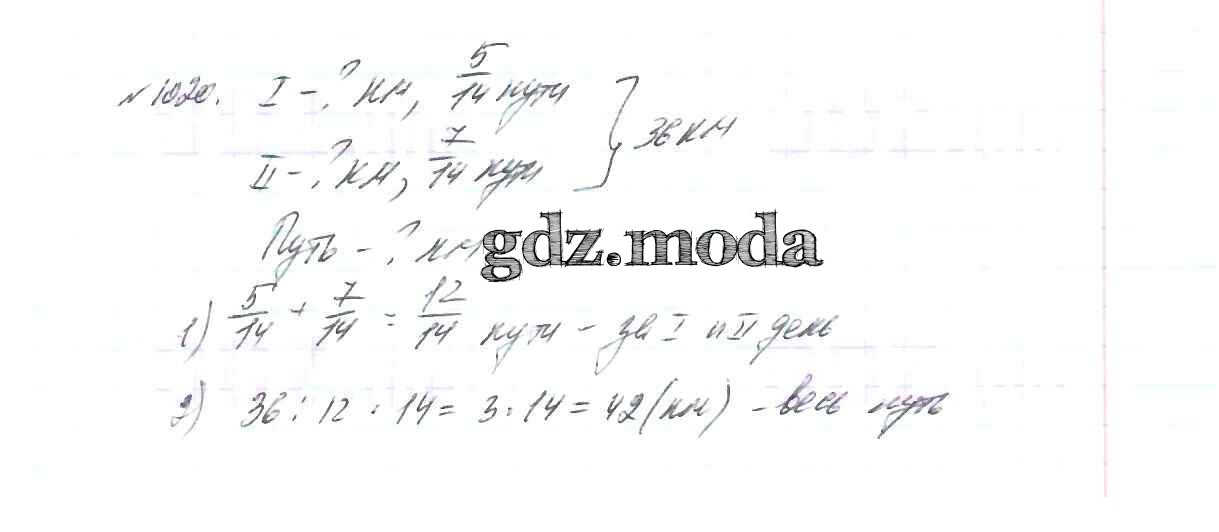 №1020. I - ? км, 5/14 пути
II - ? км, 7/14 пути } 36 км
Путь - ? км
gdz.moda
1) 5/14 + 7/14 = 12/14 пути - за I и II день
2) 36 : 12 · 14 = 3 · 14 = 42 (км) - весь путь